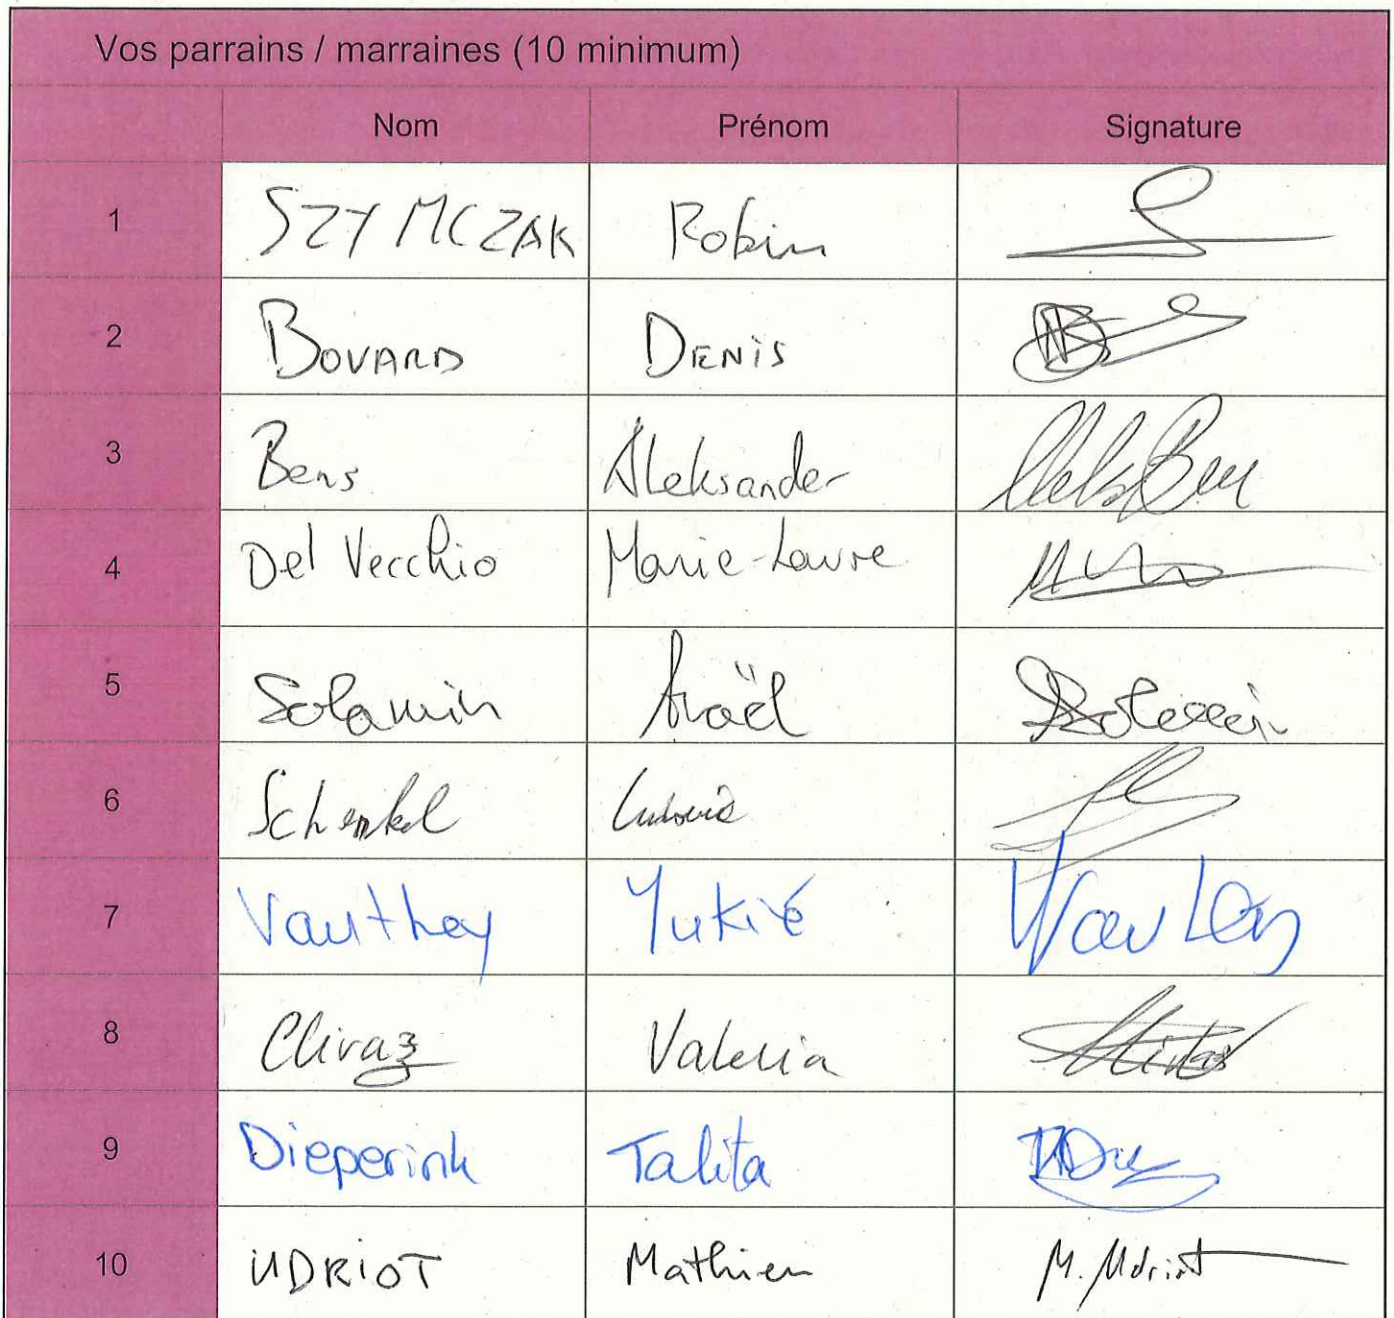 Vos parrains / marraines (10 minimum)
Nom Prénom Signature
1 SZYMCZAK Robin
2 BOVARD DENIS
3 Bens Aleksander
4 Del Vecchio Marie-Laure
5 Solamin
6 Schenkel Ludovic
7 Vauthey Yukié
8 Clivaz Valeria
9 Dieperink Talita
10 UDRIOT Mathieu M. Udriot